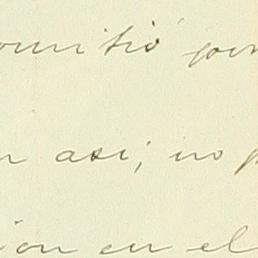 omitió por
n asi; no p
ion en el